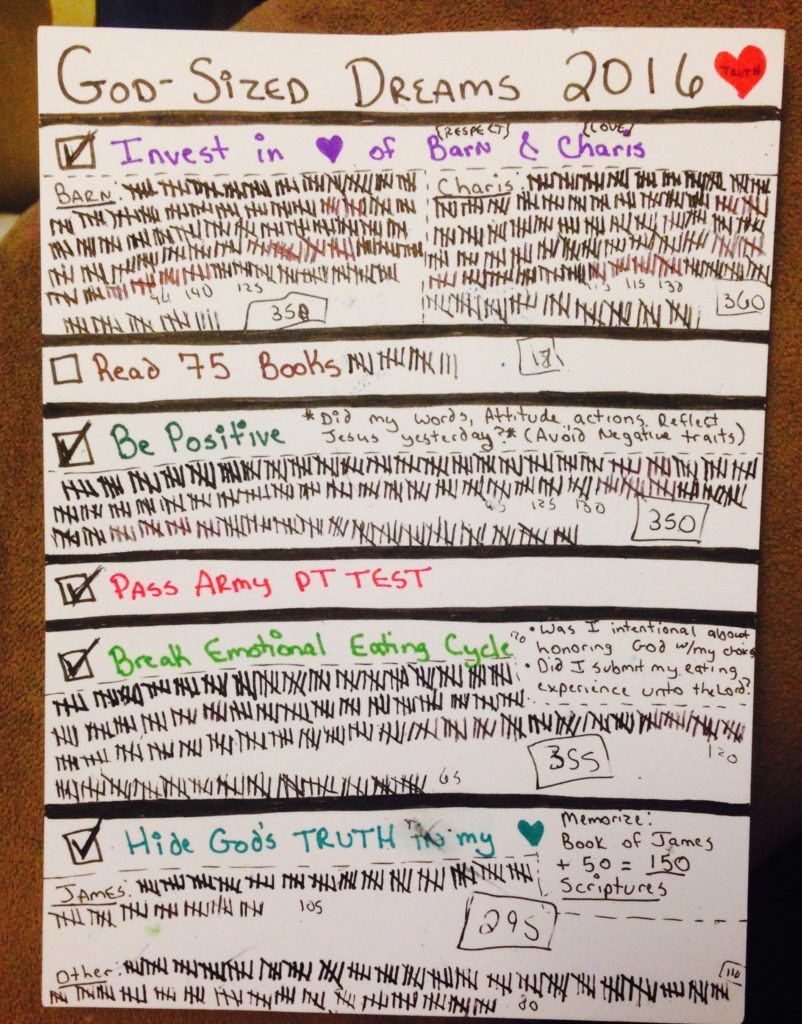 GOD-SIZED DREAMS 2016
TRUTH
(RESPECT) (LOVE)
Invest in ♥ of Barn & Charis
BARN:
Charis:
46 140 125
350
115 115 130
360
Read 75 Books
18
Be Positive *Did my words, Attitude, actions Reflect
Jesus yesterday?* (Avoid Negative traits)
45 125 130
350
PASS ARMY PT TEST
Break Emotional Eating Cycle
• Was I intentional about
honoring God w/my choices
• Did I submit my eating
experience unto the Lord?
120
355
65
Hide God's TRUTH in my ♥
Memorize:
Book of James
+ 50 = 150
Scriptures
JAMES:
105
295
Other:
110
80